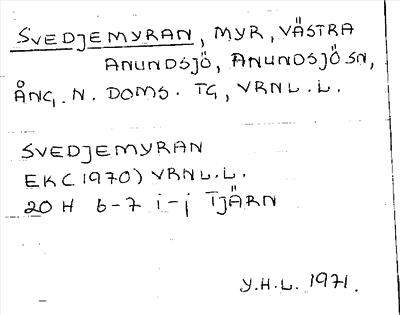 SVEDJEMYRAN, MYR, VÄSTRA
ANUNDSJÖ, ANUNDSJÖ SN,
ÅNG. N. DOMS. TG, VRNL.L.
SVEDJEMYRAN
EK(1970) VRNL.L.
20 H 6-7 i-j TJÄRN
Y.H.L. 1971.